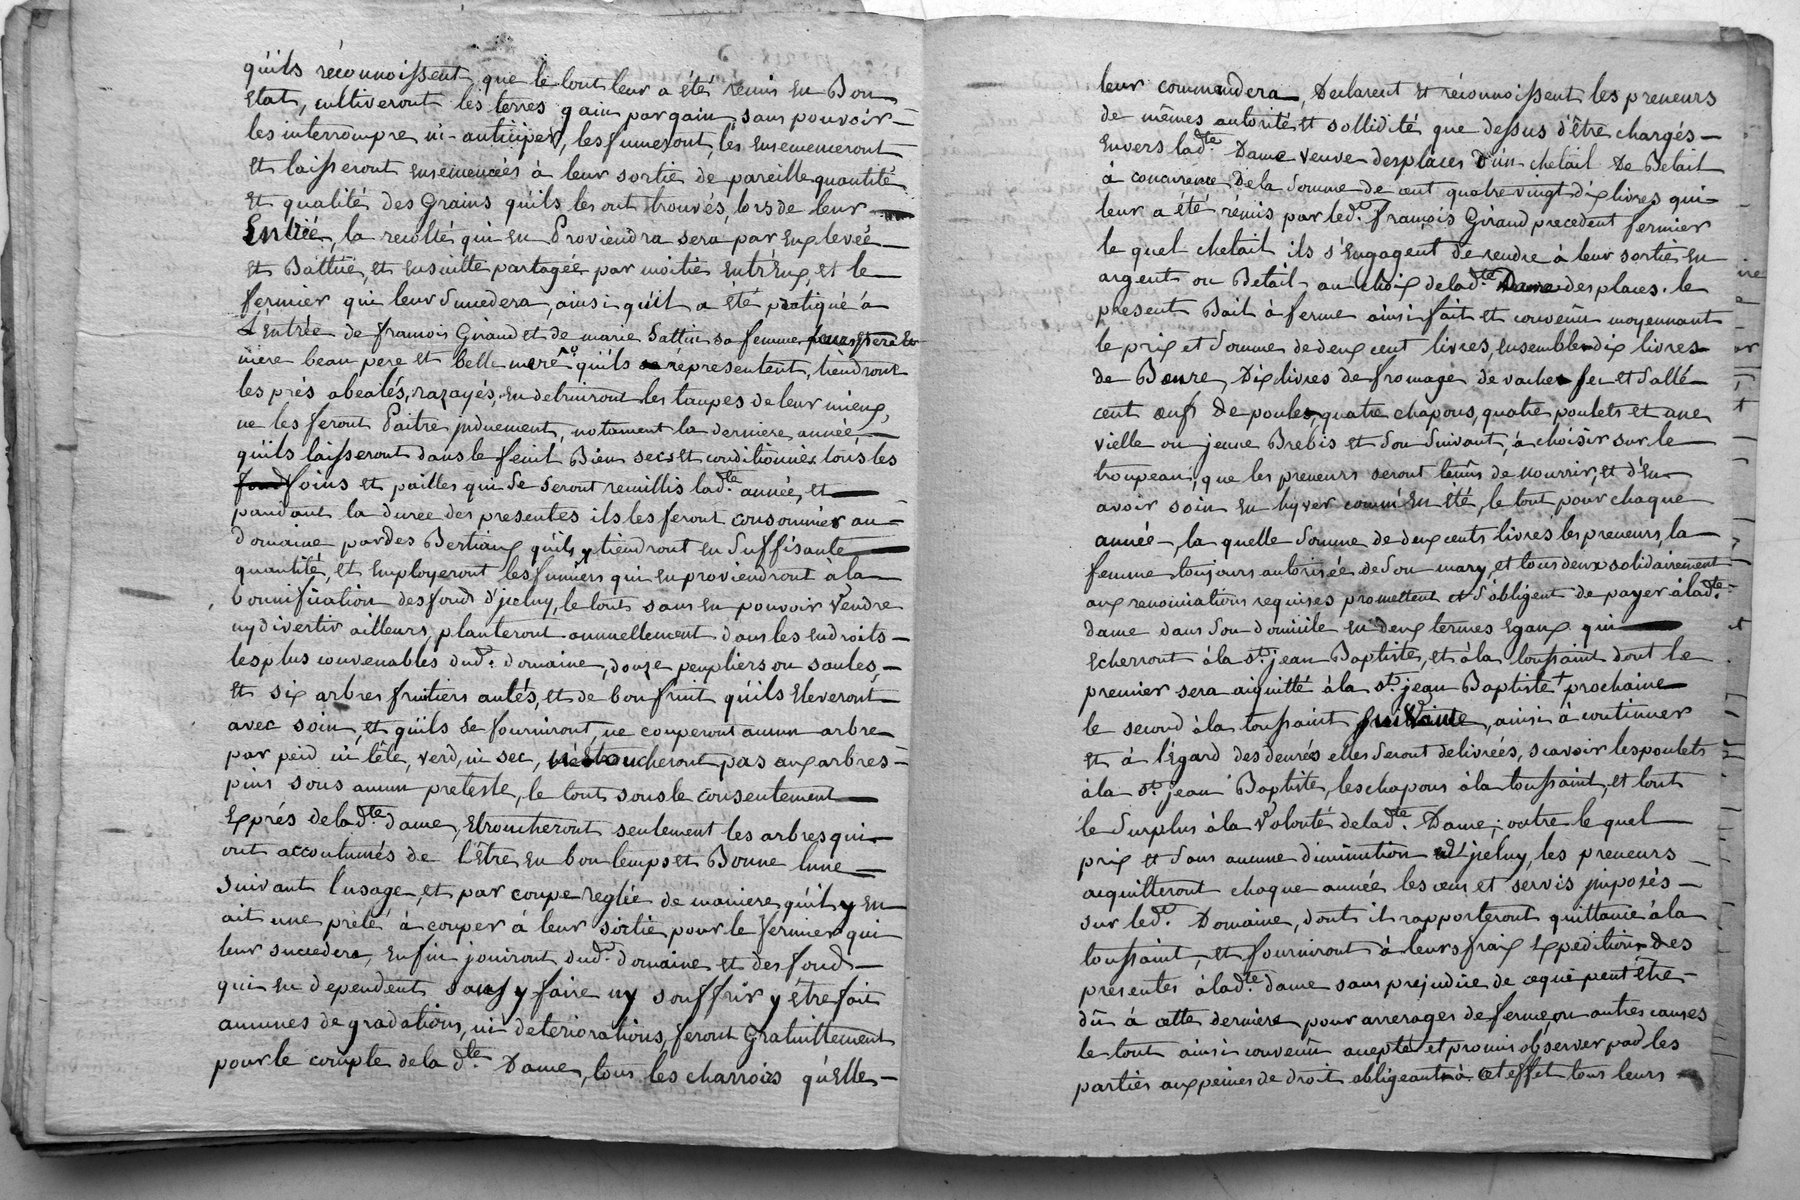 qu'ils réconnoissent que le tout leur a été rémis en Bon
Etat, cultiveront les terres gain par gain sans pouvoir
les interrompre ni anticiper, les fumeront, les ensemenceront
et laisseront ensemencés à leur sortie de pareille quantité
et qualité des Grains qu'ils les ont trouvés, lors de leur
Entrée, la recolté qui en Proviendra sera par Eux levée
et Battüe, et ensuitte partagée par moitié entr'Eux, et le
fermier qui leur Succedera, ainsi qu'il a été pratiqué à
L'Entrée de françois Giraud et de marie Sattin sa femme
mere beau pere et belle meré qu'ils réprésentent, tiendront
les prés abealés, razayés, en detruiront les taupes de leur mieux,
ne les feront Paitre jnduement, notament la derniere année
qu'ils laisseront dans le fenil Bien secs et conditionnés tous les
foins et pailles qui se seront reuillis lad.te année, et
pandant la durée des presentes ils les feront consommer au
domaine par des Bestiaux qu'ils y tiendront en Suffisante
quantité, et employeront les fumiers qui en proviendront à la
bonnification des fonds d'jceluy, le tout sans en pouvoir Vendre
ny divertir ailleurs, planteront annuellement dans les endroits
les plus convenables dud.t domaine, douze peupliers ou saules,
et six arbres fruitiers antés, et de bon fruit qu'ils Eleveront
avec soin, et qu'ils se fourniront, ne couperont aucun arbre
par peid ni tête, verd, ni sec, toucheront pas aux arbres
pins sous aucun preteste, le tout sous le consentement
Exprés de lad.te dame, Etroncheront seulement les arbres qui
ont accoutumés de l'être en bon temps et Bonne lune
suivant l'usage, et par coupe reglée de maniere qu'il y en
ait une prété à couper à leur sortie pour le fermier qui
leur succedera, enfin jouiront dud.t domaine et des fonds
qui en dependent sans y faire ny souffrir y être fait
aucunes degradations, ni deteriorations, feront Gratuittement
pour le compte de la d.te Dame, tous les charrois qu'Elle
leur commandera, Declarent et réconnoissent les preneurs
de mêmes autorité et sollidité que dessus d'être chargés
envers lad.te Dame veuve desplaces d'un chetail De Betail
à concurence De la Somme de cent quatre vingt dix livres qui
leur a été rémis par led.t françois Giraud precedent fermier
le quel chetail ils s'Engagent de rendre à leur sortie en
argent ou Betail au choix de lad.te Dame desplaces. le
present Bail à ferme ainsi fait et convenû moyennant
le prix et Somme de deux cent livres, ensemble dix livres
de Beure, Dix livres de fromage de vache sec et Sallé
cent œufs de poules, quatre chapons, quatre poulets et une
vielle ou jeune Brebis et son Suivant, à choisir sur le
troupeau, que les preneurs seront tenûs de nourrir, et d'en
avoir soin en hyver comm'en été, le tout pour chaque
année, la quelle Somme de deux cents livres les preneurs, la
femme toujours autorisée de Son mary, et tous deux solidairement
aux renonciations requises promettent et s'obligent de payer à lad.te
dame dans Son domicile en deux termes Egaux qui
echerront à la s.t jean Baptiste, et à la toussaint dont le
premier sera aiquitté à la s.t jean Baptiste prochaine
le second à la toussaint suivante, ainsi à continuer
et à l'égard des denrés elles Seront delivrées, scavoir les poulets
à la s.t jean Baptiste, les chapons à la toussaint, et tout
le Surplus à la Volonté de lad.te Dame; outre le quel
prix et Sans aucune diminution d'jceluy, les preneurs
aiquitteront chaque année les cens et servis jmposés
sur led.t Domaine, dont il rapporteront quittance à la
toussaint, et fourniront à leurs fraix Expedition des
presentes à lad.te dame sans prejudice de ce qui peut être
dû à cette derniere pour arrerages de ferme, ou autres causes
le tout ainsi convenû accepté et promis observer par les
parties aux peines de droit obligeants à cet effet tous leurs